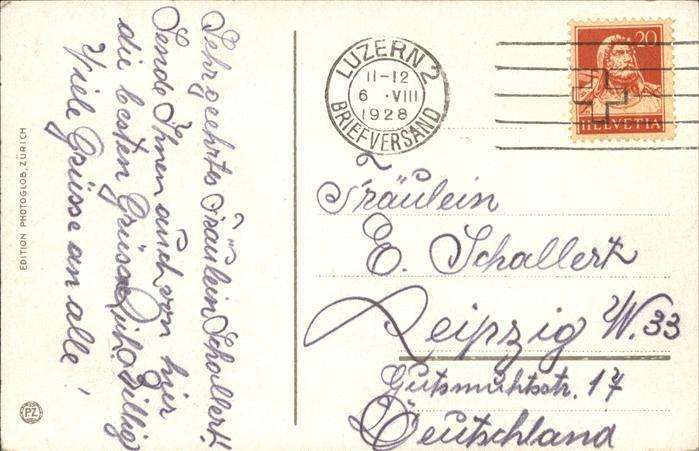 Sehr geehrtes Fräulein Schallert!
Sende Ihnen auch von hier
die besten Grüsse
Viele Grüsse an alle!
EDITION PHOTOGLOB, ZÜRICH
PZ
LUZERN 2
11-12
6 . VIII
1928
BRIEFVERSAND
20
HELVETIA
Fräulein
E. Schallert
Leipzig W. 33
Gutsmuthsstr. 17
Deutschland